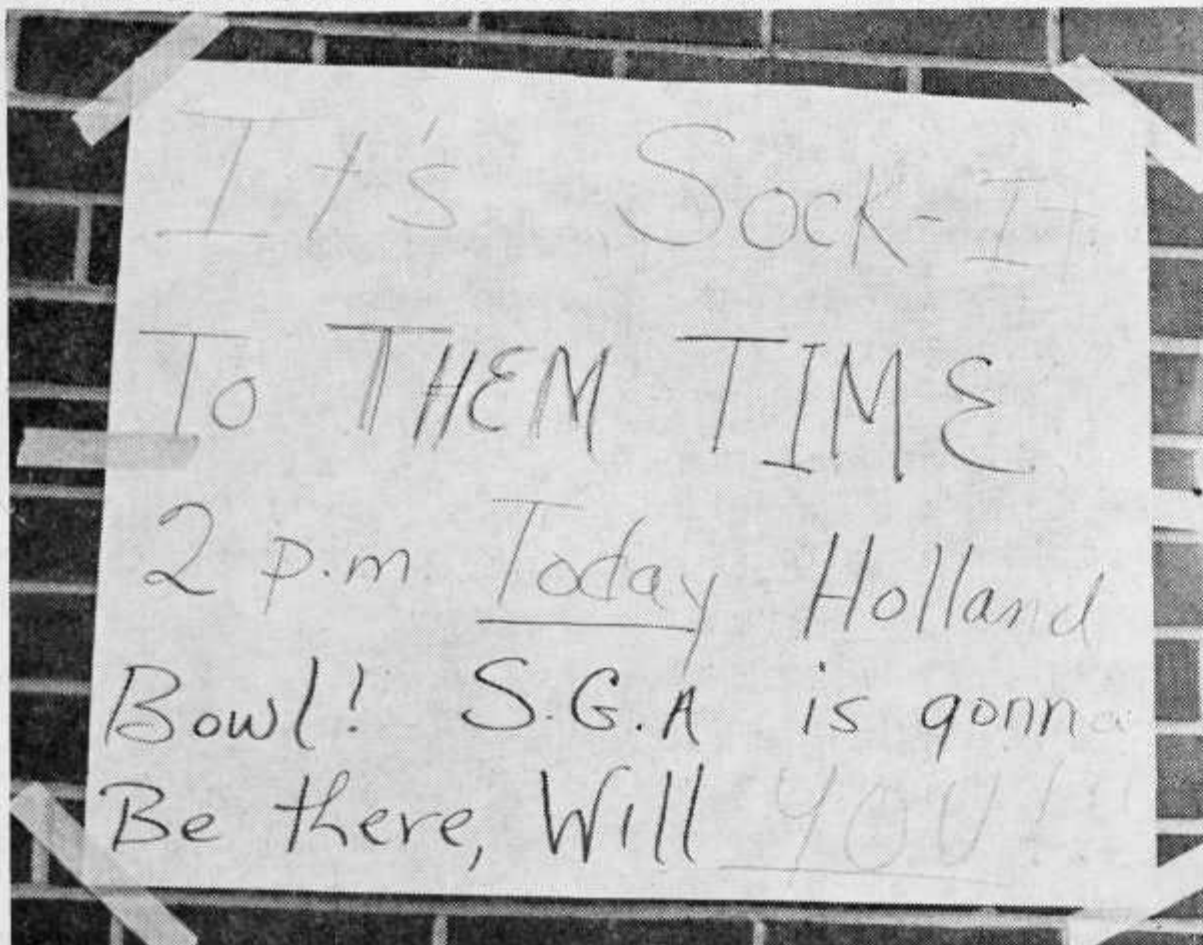 It's Sock-It
To THEM TIME
2 p.m. Today Holland
Bowl! S.G.A is gonna
Be there, Will YOU!!